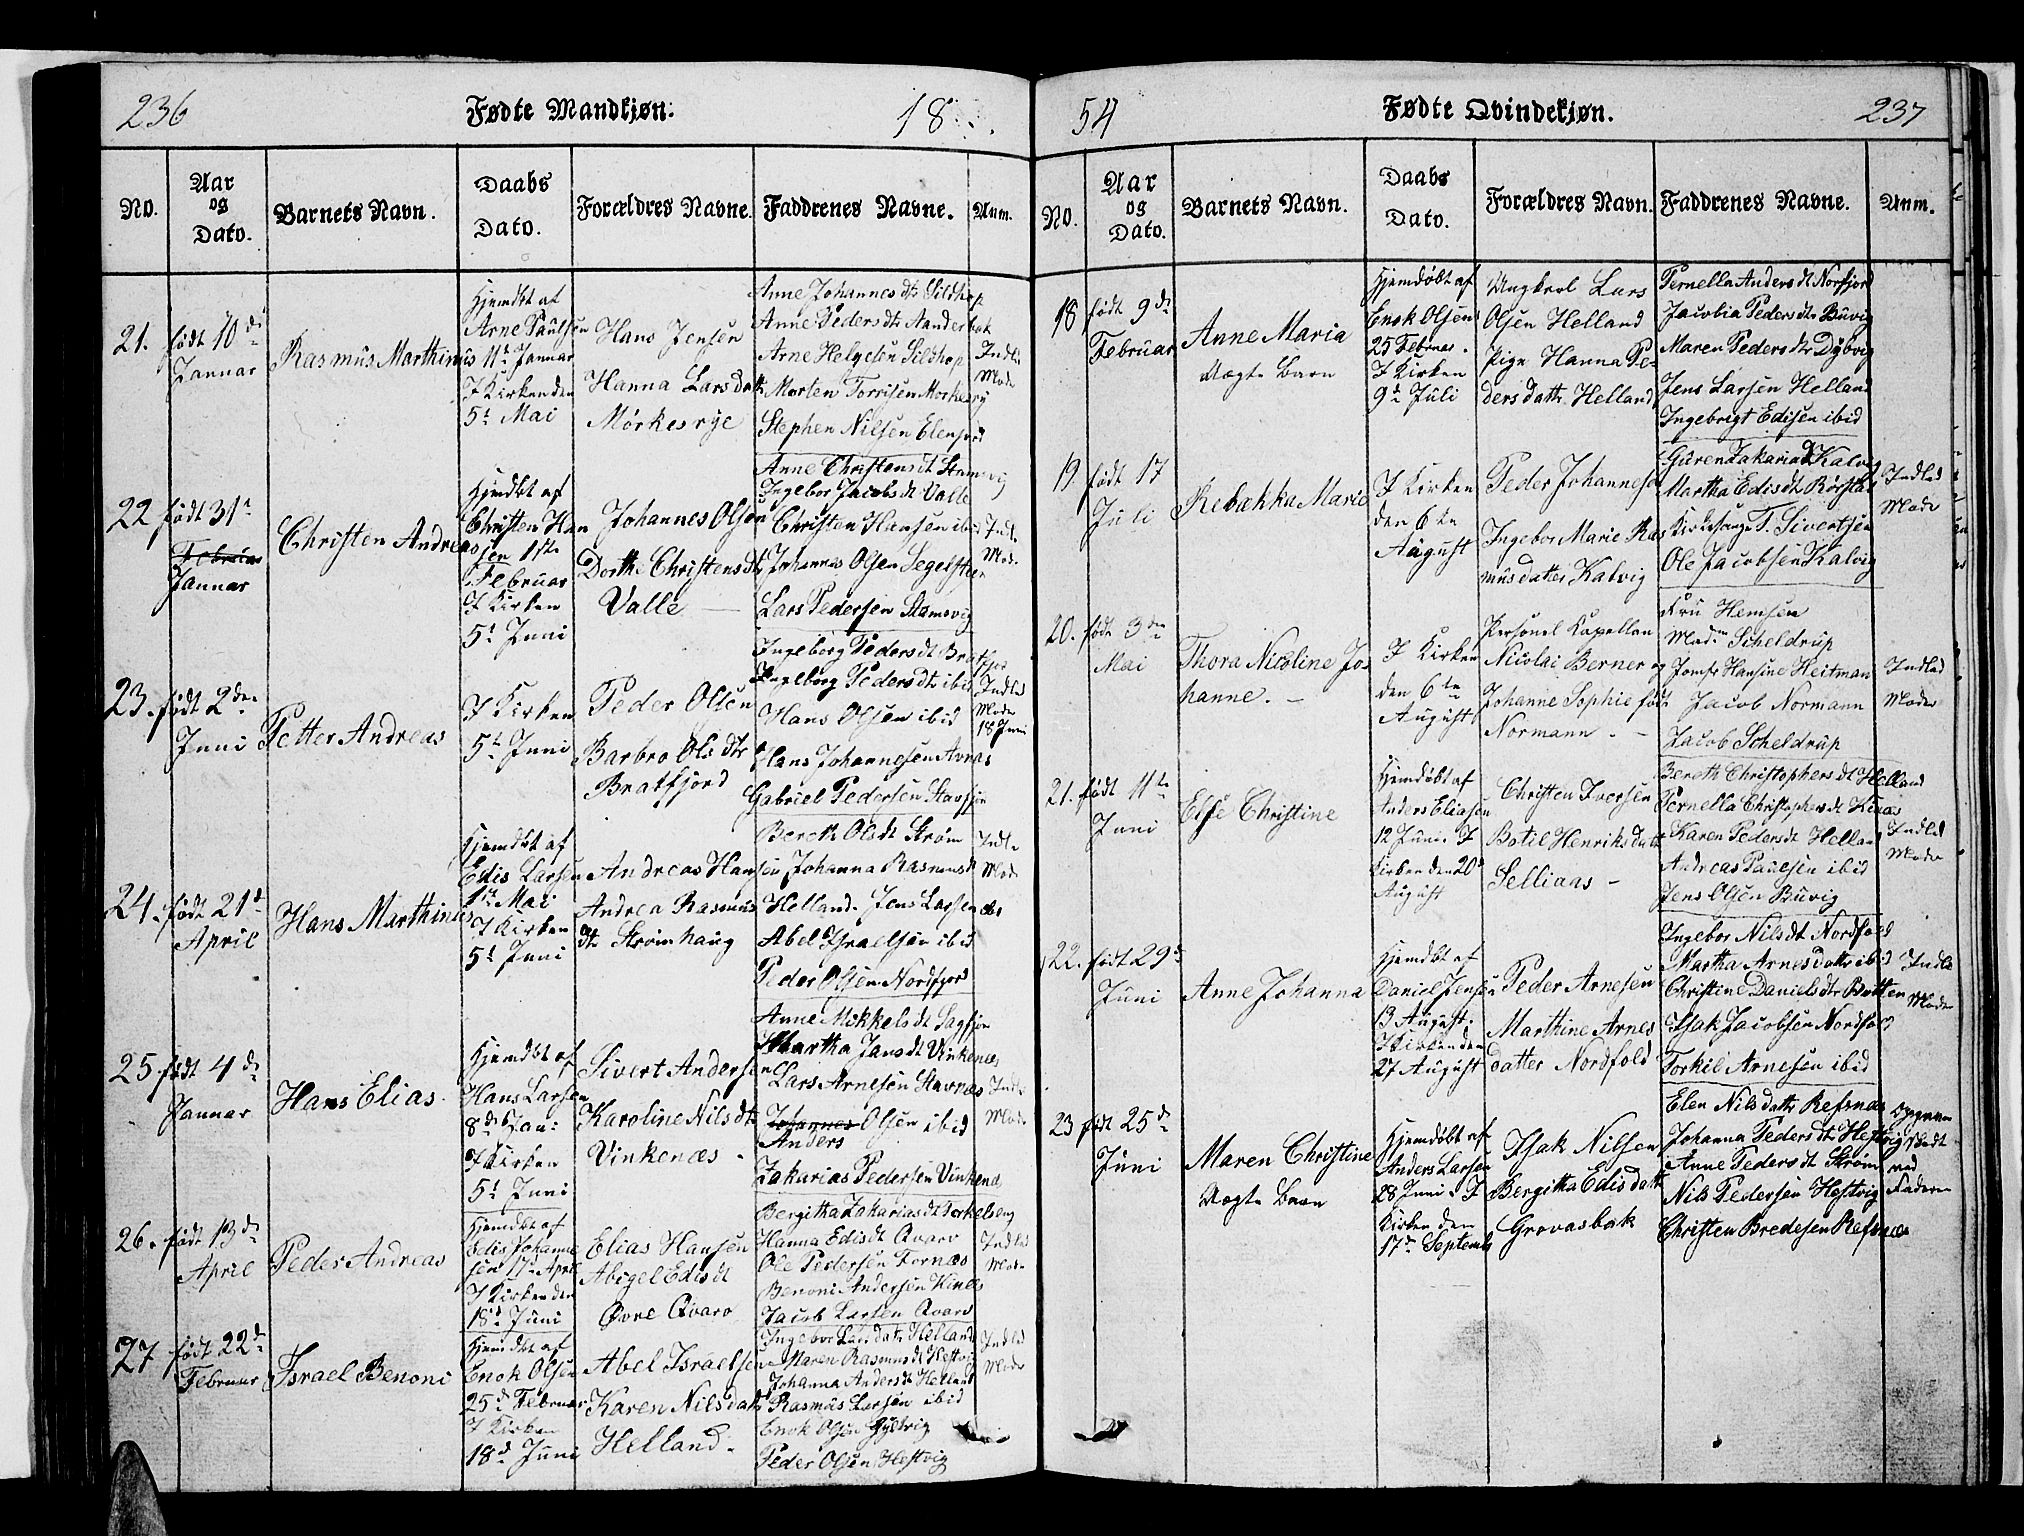 236
Fødte Mandkjøn.
18
No.
Aar
og
Dato.
Barnets Navn.
Daabs
Dato.
Forældres Navne.
Faddrenes Navne.
Anm.
21.
født 10de
Januar
Rasmus Marthinus
Hjemdbt af
Arne Paulsen
11te Januar
I Kirken den
5te Mai
Hans Jensen
Hanna Larsdatt
Mørkesrye
Anne Johannesdtr Sildhop
Anne Pedersdtr
Arne Helgesen Sildhop
Morten Torrisen
Stephen Nilsen
Indl
Mode
22
født 31te
Februar
Januar
Christen Andreas
Hjmdbt af
Christen Han
sen 1ste
Februar
I Kirken
5t Juni
Johannes Olsen
Dorthe Christensdt
Valle
Anne Christensdt Stamsvig
Ingebor Jacobsdt Valle
Christen Hansen ibid
Johannes Olsen
Lars Pedersen Stamsvig
Indl.
Mod.
23.
født 2den
Juni
Petter Andreas
I Kirken
5te Juni
Peder Olsen
Barbro Olsdtr
Bratfjord
Ingeborg Pedersdt Bratfjor
Ingeborg Pedersdtr ibid
Hans Olsen ibid
Hans Johannesen
Gabriel Pedersen
Indld
Mode
18 Juni
24.
født 21d
April
Hans Marthinus
Hjemdbt af
Edis Larsen
1ste Mai
I Kirken
5t Juni
Andreas Hansen
Andrea Rasmus
dtr Strømhaug
Bereth Olsdt Strøm
Johanna Rasmusdt
Helland. Jens Larsen
Abel Israelsen ibid
Peder Olsen Nordfjord
Indl
Mode
25
født 4de
Januar
Hans Elias
Hjemdbt af
Hans Larsen
8de Jan:
I Kirken
5t Juni
Sivert Andersen
Karoline Nilsdtr
Vinkenæs
Anne Mikkelsdt Sagfjor
Martha Jansdt Vinkenæs
Lars Arnesen Stavnæs
Johannes Olsen ibid
Anders
Zakarias Pedersen Vinkenæ
Indl
Mode
26.
født 13de
April
Peder Andreas
Hjemdbt af
Edis Johanne
sen 17de April
I Kirken den
18d Juni
Elias Hansen
Abigel Edisdt
Øvre Qvaro
Bergitha Zakariasdt Torkelseng
Hanna Edisdt Qvaro
Ole Pedersen Fornæs
Benoni Andersen Kinæs
Jacob Larsen Qvaro
Indld
Mode
27
født 22de
Februar
Israel Benoni
Hjemdbt af
Enok Olsen
25d Februar
I Kirken
18d Juni
Abel Israelsen
Karen Nilsdatt
Helland.
Ingebor Larsdatr Helland
Maren Rasmusdt Hestvig
Johanna Andersdt Helland
Rasmus Larsen ibid
Enok Olsen
Peder Olsen Hestvig
Indld
Mode
54
Fødte Qvindekjøn.
237
No.
Aar
og
Dato.
Barnets Navn.
Daabs
Dato.
Forældres Navn.
Faddrenes Navne.
Anm.
18
født 9de
Februar
Anne Maria
Uægte Barn
Hjemdøbt af
Enok Olsen
25 Februar.
I Kirken
9de Juli
Ungkrol Lars
Olsen Helland
Pige Hanna Pe-
dersdattr Helland
Pernella Andersdt Norfjord
Jacobia Pedersdtr Buvig
Maren Pedersdtr Dybvig
Jens Larsen Helland
Ingebrigt Edisen ibid
19.
født 17
Juli
Rebahka Marie
I Kirken
den 6te
August
Peder Johannesen
Ingebor Marie Ras
musdatter Kalvig
Guren Zakariad Kalvig
Martha Edisdt Rørstad
Kirkesanger T. Sivertsen
Ole Jacobsen Kalvig
Indled
Mode
20.
født 3den
Mai
Thora Nicoline Jo
hanne.
I Kirken
den 6te
August
Personel Kapellan
Nicolai Berner og
Johanne Sophie født
Normann.
Fru Hemsen
Madm Scheldrup
Jomfr Hansine Heitman
Jacob Normann
Jacob Scheldrup
Indled
Moder
21.
født 11te
Juni
Else Christine
Hjemdøbt af
Anders Eliasen
12 Juni. I
Kirken den 20d
August
Christen Iversen
Botil Henriksdatt
Selliaas
Bereth Christophersdt Helland
Pernella Christophersdt Kinæs
Karen Pedersdt Helland
Andreas Paulsen ibid
Jens Olsen Buvig
Indled
Mode
22.
født 29de
Juni
Anne Johanna
Hjemdbt af
Daniel Jensen
13 August.
I Kirken den
27 August
Peder Arnesen
Marthine Arnes
datter Nordfold
Ingebor Nilsdt Nordfold
Martha Arnesdattr ibid
Christine Danielsdtr Botten
Isak Jacobsen Nordfold
Torkil Arnesen ibid
Indle
Mode
23
født 25de
Juni
Maren Christine
Uægte Barn
Hjemdøbt af
Anders Larsen
28 Juni. I
Kirken den
17de Septemb
Isak Nilsen
Bergitha Edisdatt
Grovasbak
Elen Nilsdattr Refsnæs
Johanna Pedersdtr Hestvig
Anne Pedersdt Strøm
Nils Pedersen Hestvig
Christen Bredesen Refsnæs
ved
Faderen